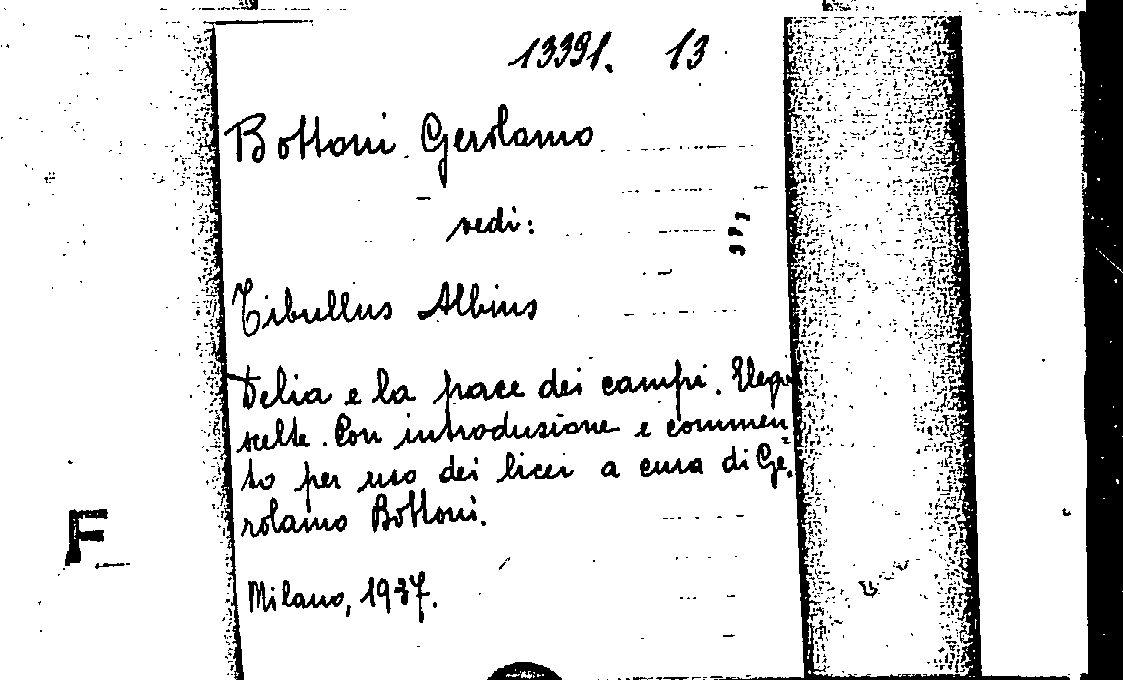 13391. 13
Bottoni Gerolamo
vedi:
Tibullus Albius
Delia e la pace dei campi. Elegie
scelte. Con introduzione e commen-
to per uso dei licei a cura di Ge-
rolamo Bottoni.
Milano, 1937.
F